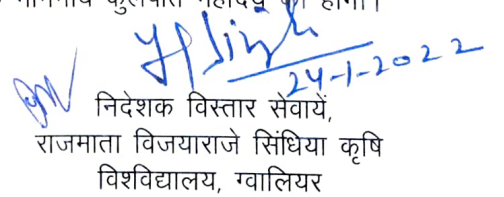 माननीय कुलपति महोदय को होगा।
24-1-2022
निदेशक विस्तार सेवायें,
राजमाता विजयाराजे सिंधिया कृषि
विश्वविद्यालय, ग्वालियर